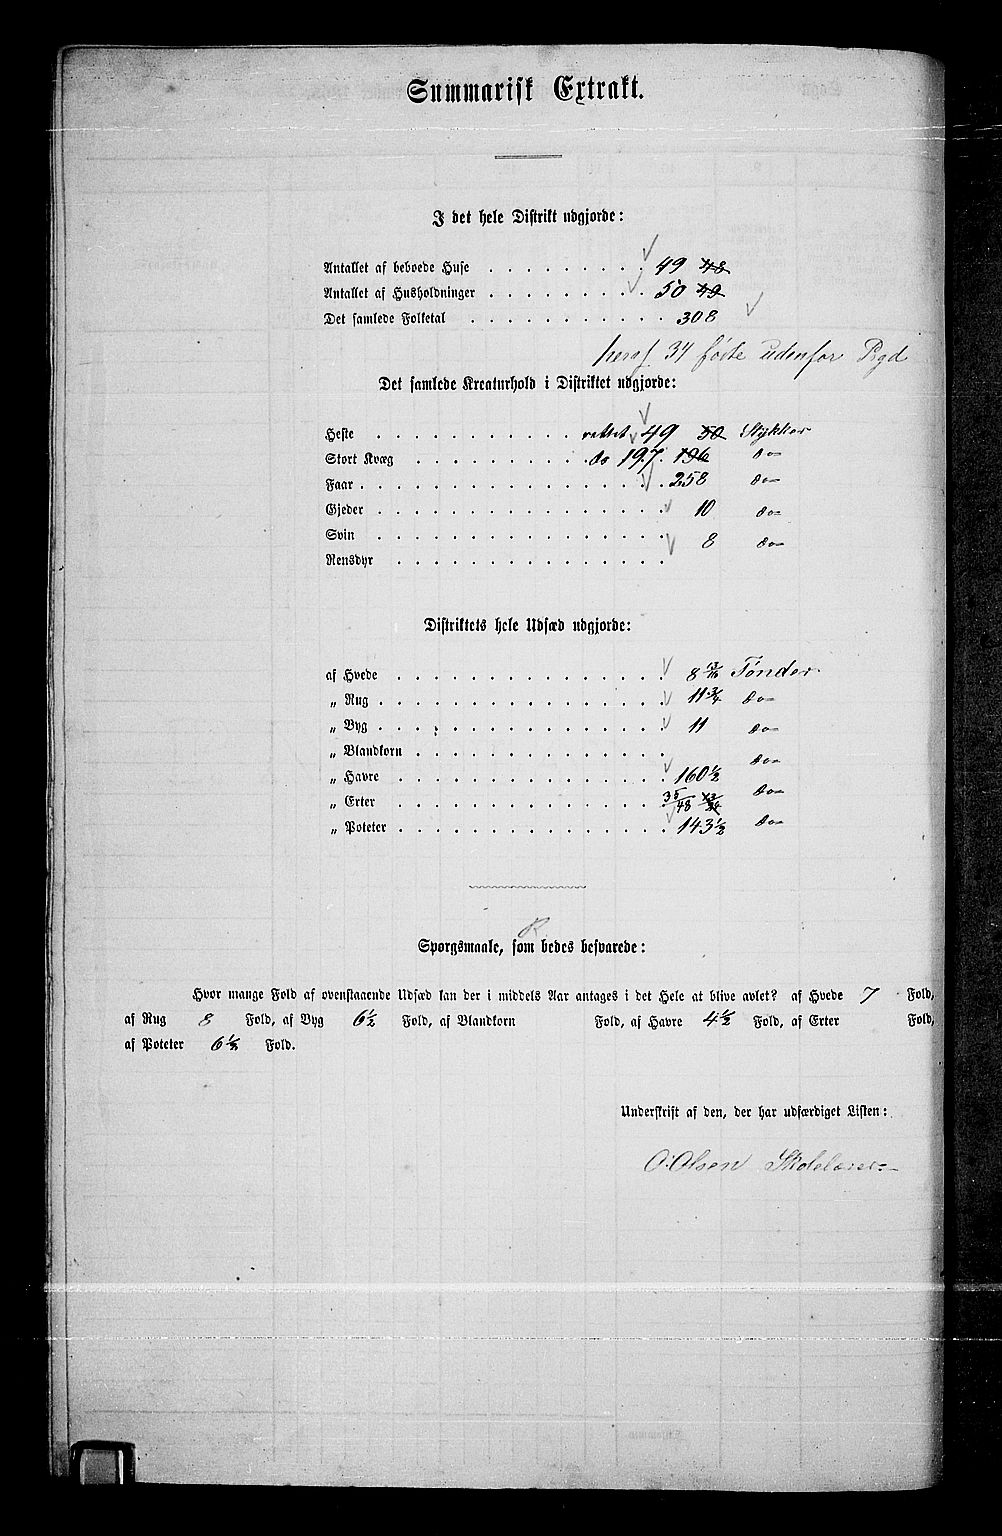 Summarisk Extrakt.
I det hele Distrikt udgjorde:
Antallet af beboede Huse . . . . . . . . . 49 48
Antallet af Husholdninger . . . . . . . . . 50 49
Det samlede Folketal . . . . . . . . . . . 308
heraf 34 fødte udenfor Prgd
Det samlede Kreaturhold i Distriktet udgjorde:
Heste . . . . . . . . . . . . rettet 49 50 Stykker
Stort Kvæg . . . . . . . . . . do 197 196 do
Faar . . . . . . . . . . . . . . . . . 258 do
Gjeder . . . . . . . . . . . . . . . . 10 do
Svin . . . . . . . . . . . . . . . . 8 do
Rensdyr . . . . . . . . . . . . . . .
Distriktets hele Udsæd udgjorde:
af Hvede . . . . . . . . . . . . . . . 8 13/16 Tønder
„ Rug . . . . . . . . . . . . . . . . 11 3/4 do
„ Byg . . . . . . . . . . . . . . . . 11 do
„ Blandkorn . . . . . . . . . . . . . . do
„ Havre . . . . . . . . . . . . . . . 160 1/2
„ Erter . . . . . . . . . . . . . . . 35/48 do
„ Poteter . . . . . . . . . . . . . . . 143 1/2 do
Spørgsmaale, som bedes besvarede:
Hvor mange Fold af ovenstaaende Udsæd kan der i middels Aar antages i det Hele at blive avlet? af Hvede 7 Fold,
af Rug 8 Fold, af Byg 6 1/2 Fold, af Blandkorn Fold, af Havre 4 1/2 Fold, af Erter Fold,
af Poteter 6 1/2 Fold.
Underskrift af den, der har udfærdiget Listen:
O. Olsen Skolelærer